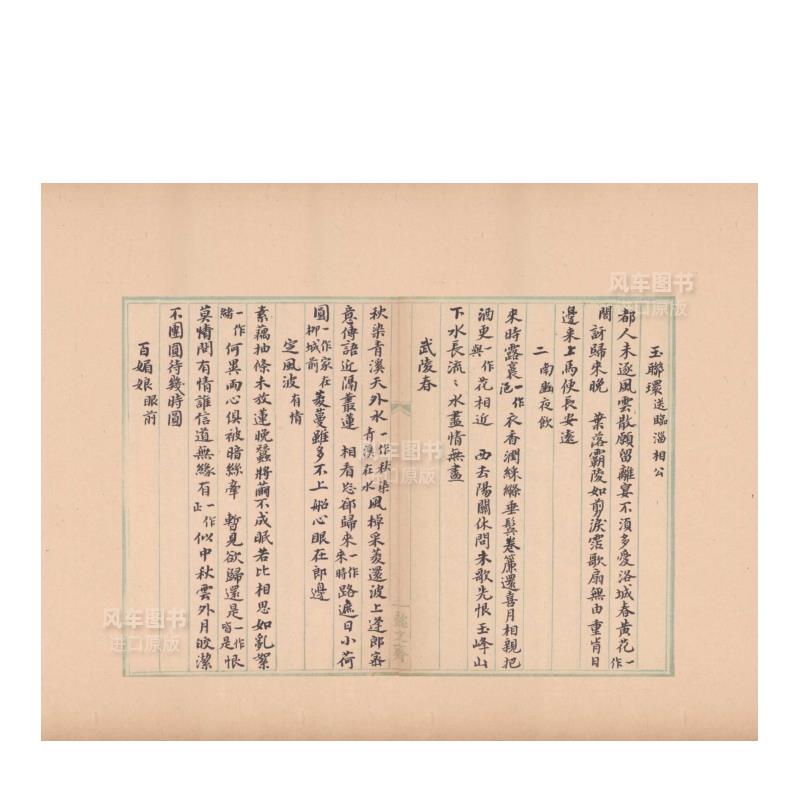 玉聯環送臨淄相公
都人未逐風雲散願留離宴不須多愛洛城春黃花一作
閙訝歸來晚　葉落霸陵如剪淚霑歌扇無由重肯日
邊來上馬便長安遠
二 南幽夜飲
來時露裛一作浥衣香潤綵縧垂鬢卷簾還喜月相親把
酒更一作與花相近　西去陽關休問未歌先恨玉峰山
下水長流〻水盡情無盡
武陵春
秋染青溪天外水一作秋染青溪在水風棹采菱還波上逢郎密
意傳語近隔叢蓮　相看忽卻歸來一作來時路遮日小荷
圓一作家在柳城前菱蔓雖多不上船心眼在郎邊
定風波有情
素藕抽條未放蓮晚蠶將繭不成眠若比相思如亂絮
一作緒何異兩心俱被暗絲牽　暫見欲歸還是一作皆是恨
莫情問有情誰信道無緣有一作止似中秋雲外月皎潔
不團圓待幾時圓
百媚娘眼前
风车图书
进口原版
风车图书
进口原版
风车图书
进口原版